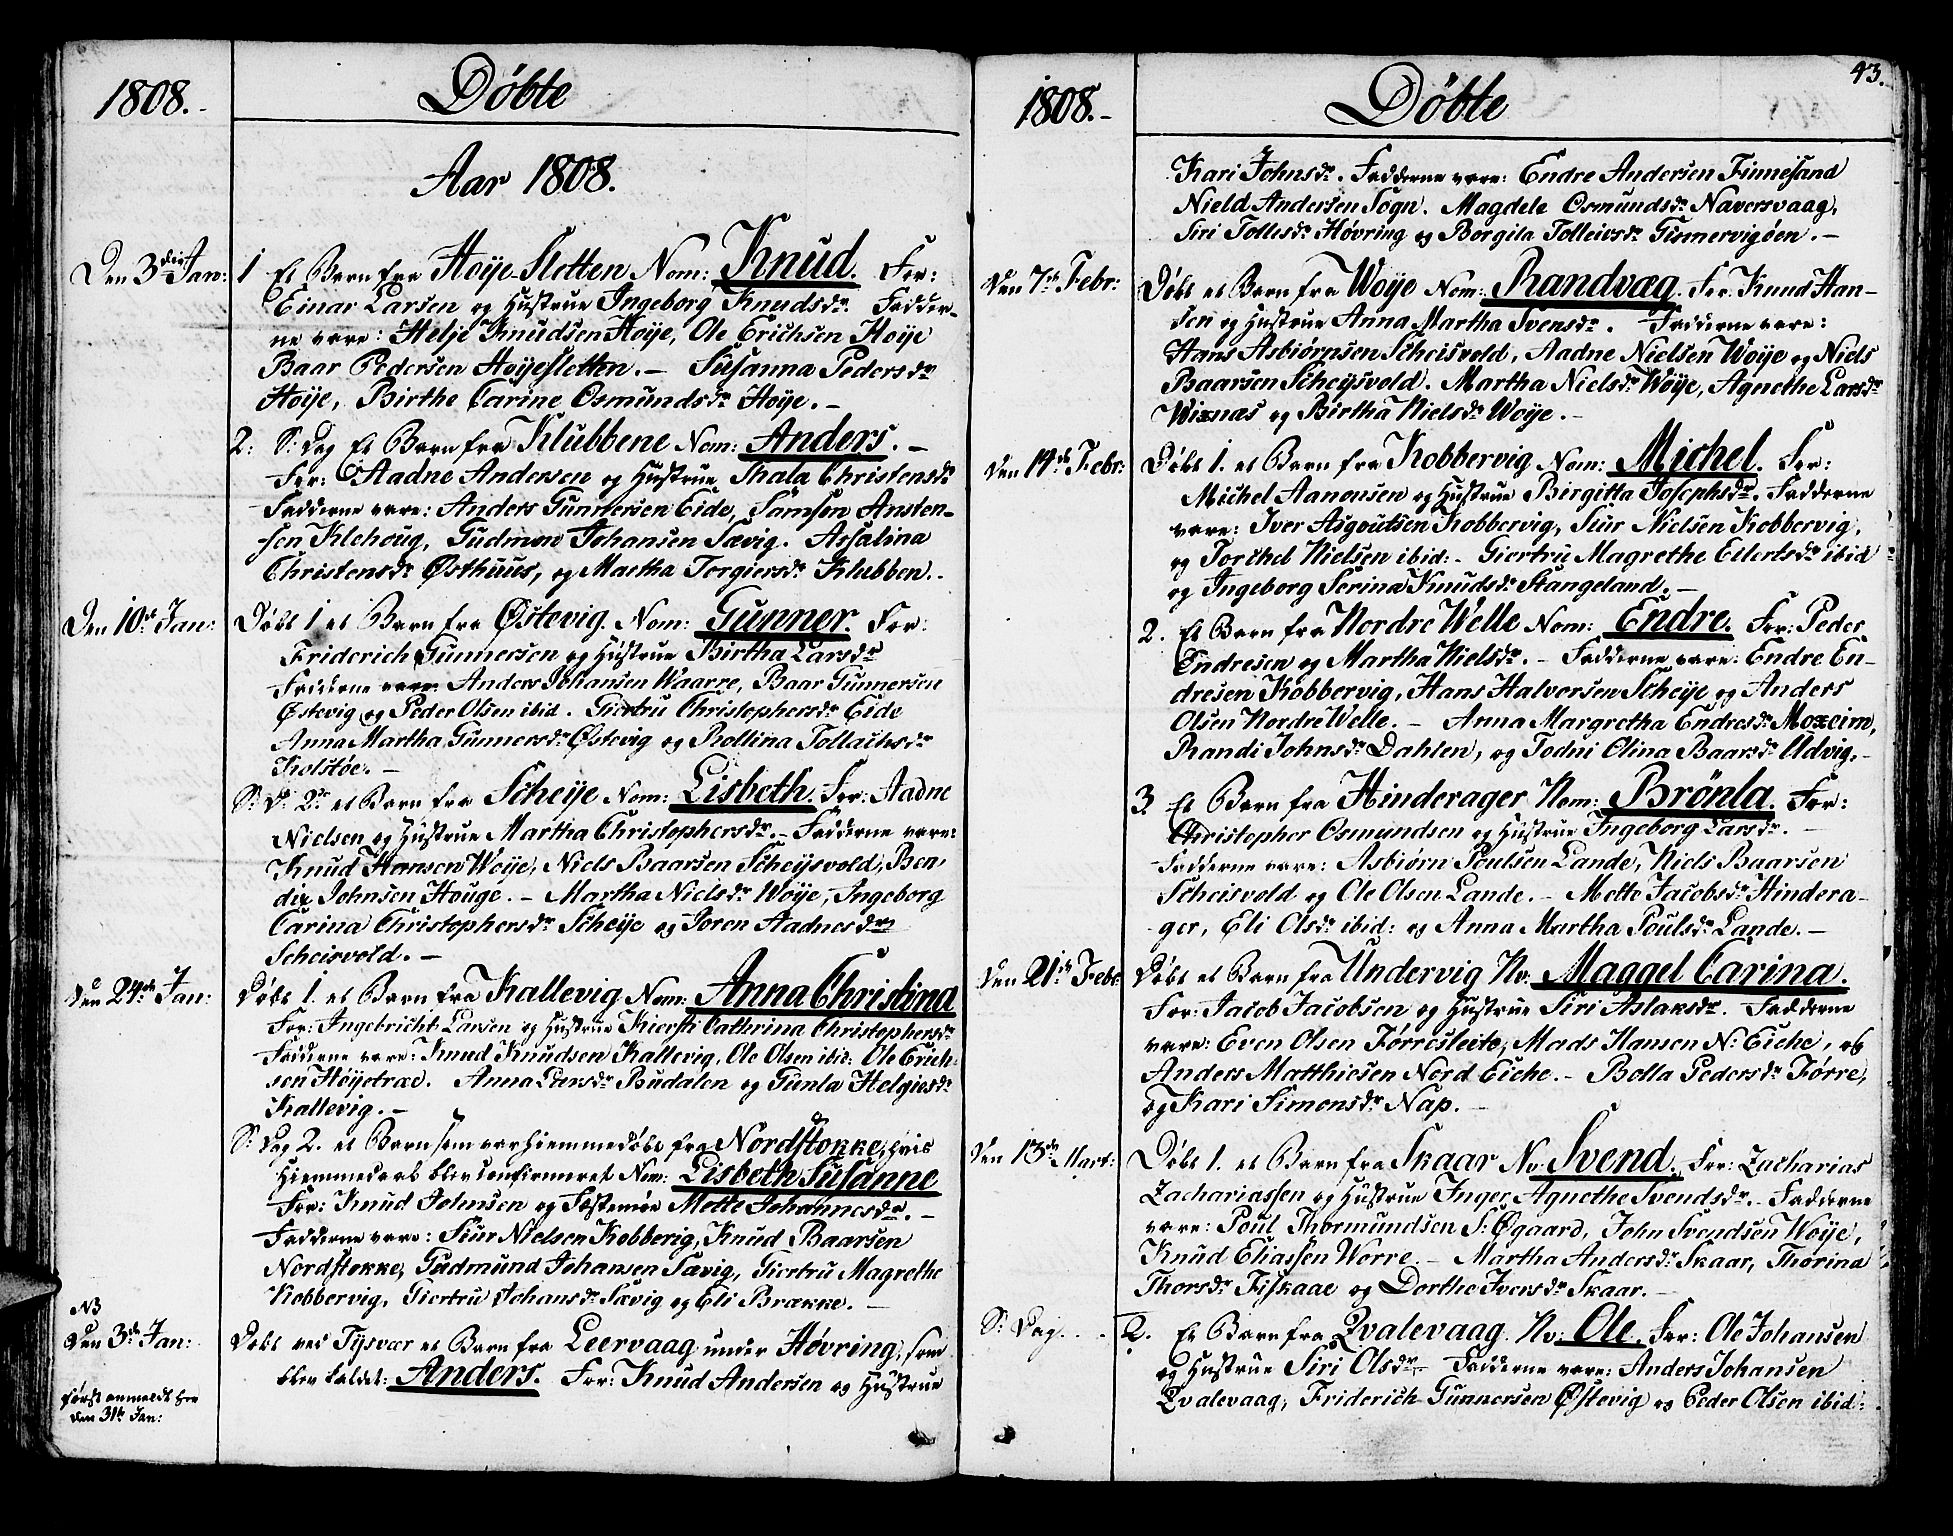 1808.
Döbte
Aar 1808.
Den 3die Jan:
1 Et Barn fra Høye Sletten Nom: Knud. For:
Einar Larsen og Hustrue Ingeborg Knudsdr. Fadder-
ne vare: Helje Knudsen Høye, Ole Erichsen Høye
Baar Pedersen Høyesletten. – Susanna Pedersdr
Høye, Birthe Carine Osmundsdr Høye. –
2: S: Dag Et Barn fra Klubbene Nom: Anders. –
For: Aadne Andersen og Hustrue Thala Christensdr
Fadderne vare: Anders Gunnersen Eide, Samson Ansten-
sen Klehoug, Gudmun Johansen Sævig. Assalina
Christensdr Østhuus, og Martha Torgiersdr Klubben. –
Den 10de Jan:
Døbt 1 et Barn fra Østevig. Nom: Gunner. For:
Friderich Gunnersen og Hustrue Birtha Larsdr
Fadderne vare Anders Johansen Waarre, Baar Gunnersen
Østevig og Peder Olsen ibid. Giertru Christophersdr Eide
Anna Martha Gunnersdr Østevig og Rollina Tollachsdr
Kolstøe. –
S: D: 2de et Barn fra Scheije Nom: Lisbeth. For: Aadne
Nielsen og Hustrue Martha Christophersdr. – Fadderne vare:
Knud Hansen Woije, Niels Baarsen Scheijsvold, Ben-
dix Johnsen Houge. – Martha Nielsdr Woije, Ingeborg
Carina Christophersdr Scheije og Joren Aadnesdr
Scheisvold. –
Den 24de Jan:
Døbt 1. et Barn fra Kallevig Nom: Anna Christina
For: Ingebricht Larsen og Hustrue Kiersti Cathrina Christophersdr
Fadderne vare: Knud Knudsen Kallevig, Ole Olsen ibid: Ole Erich-
sen Høyetræ. Anna Larsdr Budalen og Gunla Helgiesdr
Kallevig. –
S: Dag 2. et Barn som var hiemmedøbt fra Nordstokke, hvis
Hiemmedaab blev confirmeret Nom: Lisbeth Susanne
For: Knud Johnsen og Fæstemøe Mette Johannesdr. –
Fadderne vare: Siur Nielsen Kobberig, Knud Baarsen
Nordstokke, Gudmund Johansen Sævig, Giertru Magrethe
Kobbervig, Giertru Johansdr Sævig og Eli Brække. –
NB
Den 3de Jan:
først anmeldt her
den 31te Jan:
Døbt ved Tysvær et Barn fra Leervaag under Høvring, som
blev kaldet: Anders. For: Knud Andersen og Hustrue
1808. –
Döbte
43.
Kari Johnsdr. Fadderne vare: Endre Andersen Finnesand
Nield Andersen Sogn. Magdele Osmundsdr Naversvaag,
Siri Tollesdr Høvring og Borgila Tolleivsdr Gismervigøen. –
Den 7de Febr:
Døbt et Barn fra Woije Nom: Randvæg. For: Knud Han-
sen og Hustrue Anna Martha Svensdr. Fadderne vare:
Hans Asbiørnsen Scheisvold, Aadne Nielsen Woije og Niels
Baarsen Scheijsvold. Martha Nielsdr Woije, Agnethe Larsdr
Wixnæs og Birtha Nielsdr Woije. –
Den 14de Febr:
Døbt 1. et Barn fra Kobbervig Nom: Michel. For:
Michel Aanonsen og Hustrue Birgitta Josephsdr. Fadderne
vare: Iver Asgoutsen Kobbervig, Siur Nielsen Kobbervig,
og Torchel Nielsen ibid: – Giertru Magrethe Eilertsdr ibid
og Ingeborg Serina Knudsdr Stangeland. –
2. Et Barn fra Nordre Welle Nom: Endre. For: Peder
Endresen og Martha Nielsdr. – Fadderne vare: Endre En-
dresen Kobbervig, Hans Halvorsen Scheije og Anders
Olsen Nordre Welle. – Anna Margretha Endresdr Moxeim,
Randi Johnsdr Dahlen, og Todni Olina Baarsdr Udvig. –
3 Et Barn fra Hinderager Nom: Brönla. For:
Christopher Osmundsen og Hustrue Ingeborg Larsdr. –
Fadderne vare: Asbiørn Poulsen Lande, Niels Baarsen
Scheisvold og Ole Olsen Lande. – Mette Jacobsdr Hindera-
ger, Eli Olsdr ibid: og Anna Martha Poulsdr Lande. –
Den 21de Febr
Døbt et Barn fra Undervig No. Maggel Carina.
For: Jacob Jacobsen og Hustrue Siri Aslaksdr. Fadderne
vare: Even Olsen Førresleite, Mads Hansen N: Eiche, og
Anders Matthiesen Nord Eiche. – Bolla Pedersdr Førre,
og Kari Simonsdr Nap. –
Den 13de Mart:
Døbt 1. et Barn fra Skaar No: Svend. For: Zacharias
Zachariassen og Hustrue Inger Agnethe Svendsdr. – Fadderne
vare: Poul Thormundsen S: Øgaard, John Svendsen Woije,
Knud Eliassen Worre. – Martha Andersdr Skaar, Thorina
Thorsdr Fiskaae og Dorthe Iversdr Skaar. –
S: Dag. . .
2. Et Barn fra Qvalevaag. No: Ole. For: Ole Johansen
og Hustrue Siri Olsdr – Fadderne vare: Anders Johansen
Qvalevaag, Friderich Gunnersen Østevig og Peder Olsen ibid: